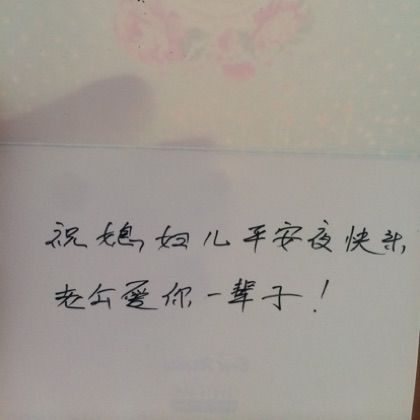 祝媳妇儿平安夜快乐,
老公爱你一辈子!